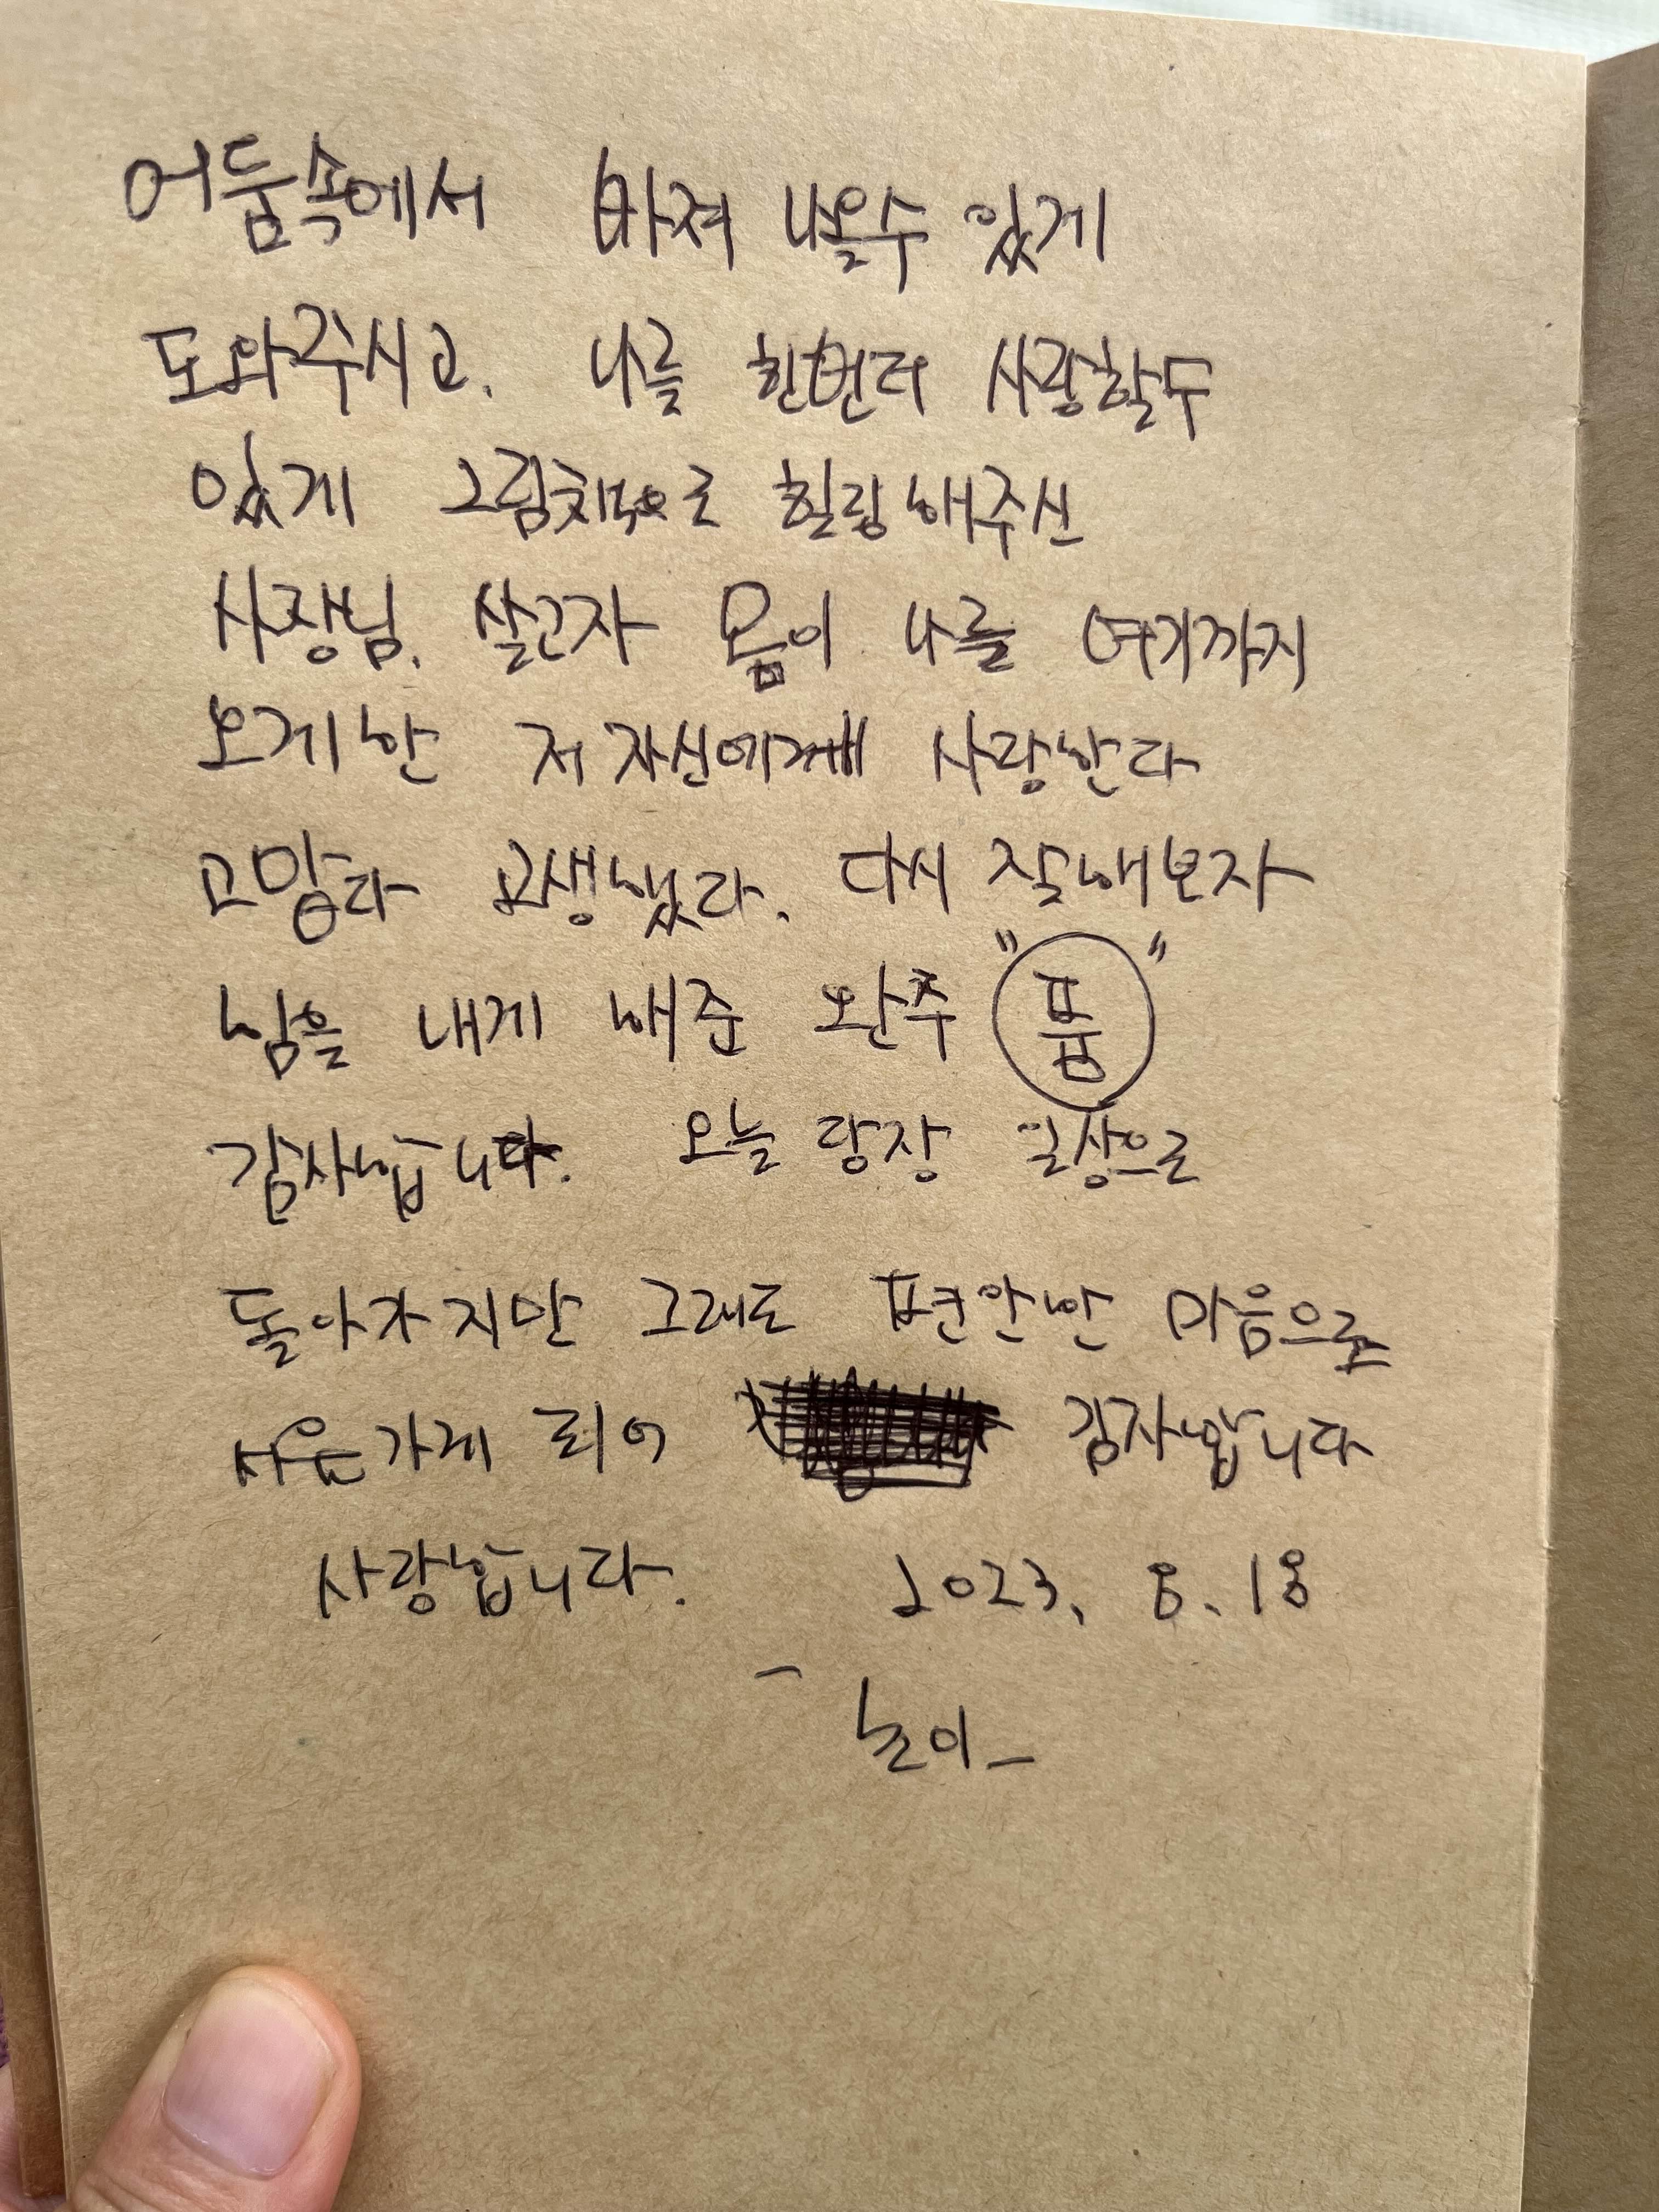 어둠속에서 빠져 나올수 있게
도와주시고. 나를 한번더 사랑할수
있게 그림치료로 힐링해주신
사장님. 살고자 몸이 나를 여기까지
오게한 저 자신에게 사랑한다
고맙다 고생했다. 다시 잘해보자
힘을 내게 해준 완주 "품"
감사합니다. 오늘 당장 일상으로
돌아가지만 그래도 편안한 마음으로
가게 되어 감사합니다
사랑합니다. 2023. 8. 18